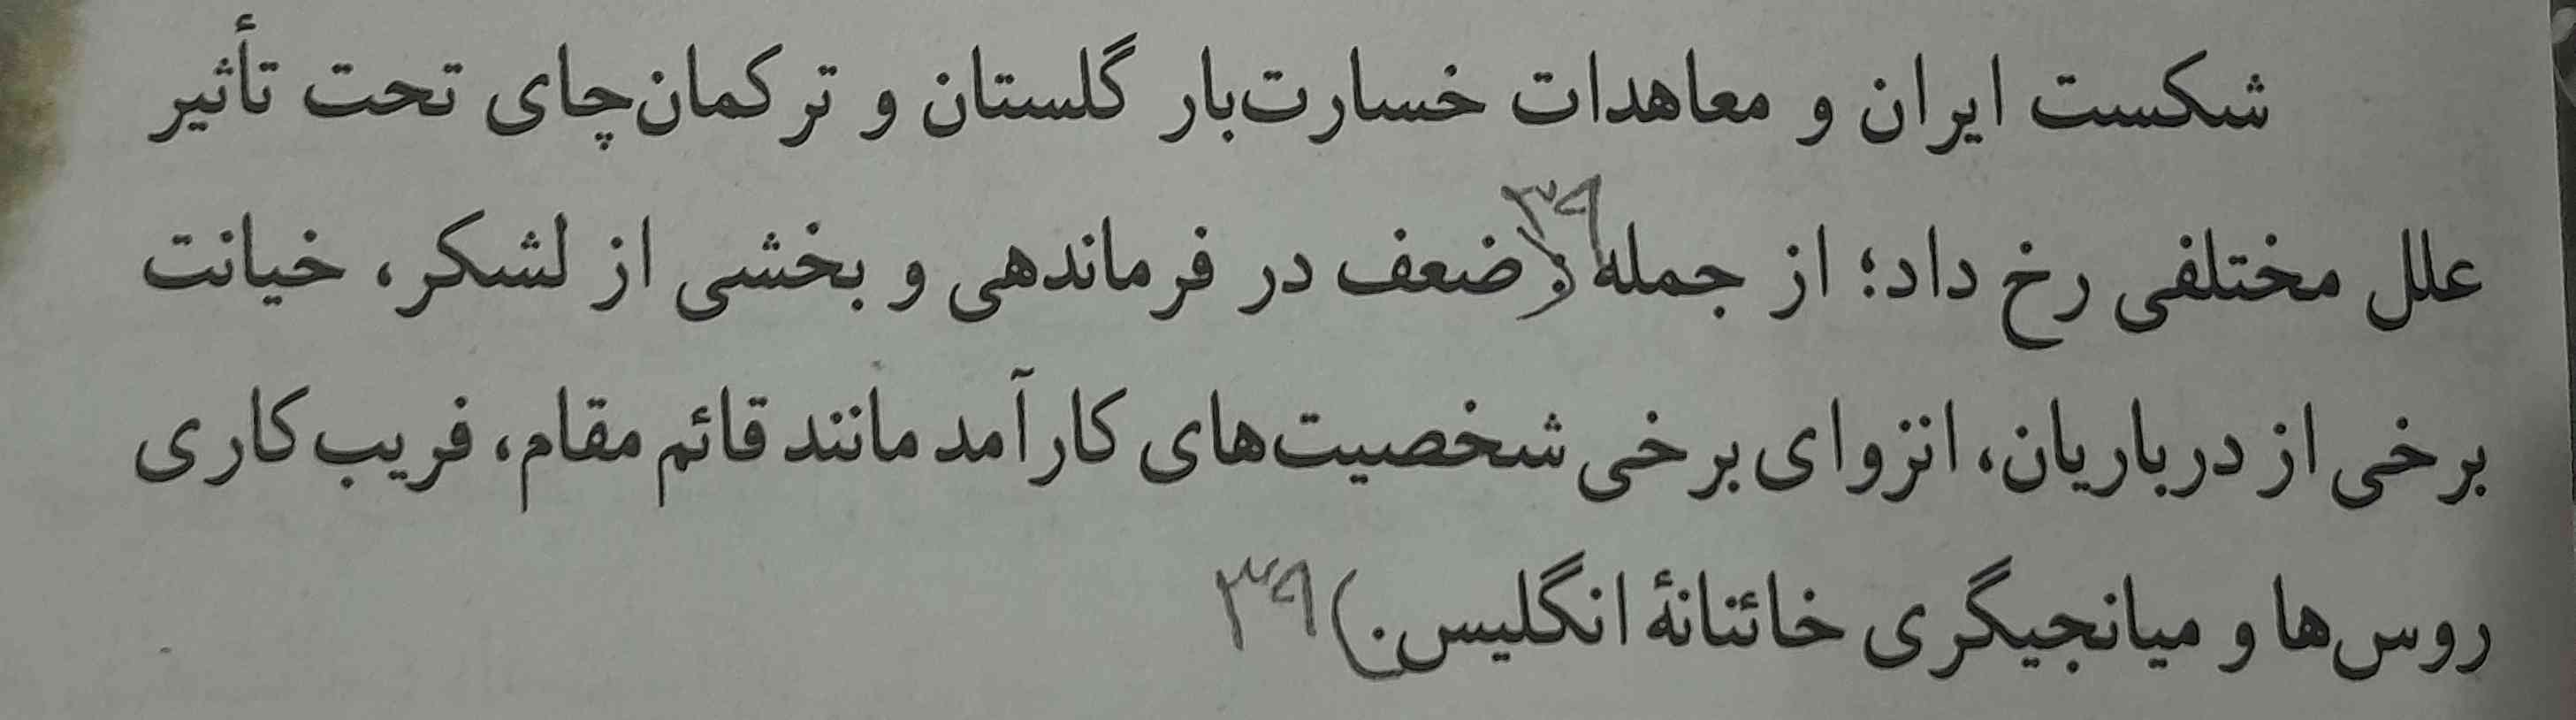 شکست ایران و معاهدات خسارت‌بار گلستان و ترکمان‌چای تحت تأثیر
۳۹
علل مختلفی رخ داد؛ از جمله: (ضعف در فرماندهی و بخشی از لشکر، خیانت
برخی از درباریان، انزوای برخی شخصیت‌های کارآمد مانند قائم مقام، فریب‌کاری
روس‌ها و میانجیگری خائنانهٔ انگلیس.) ۳۹